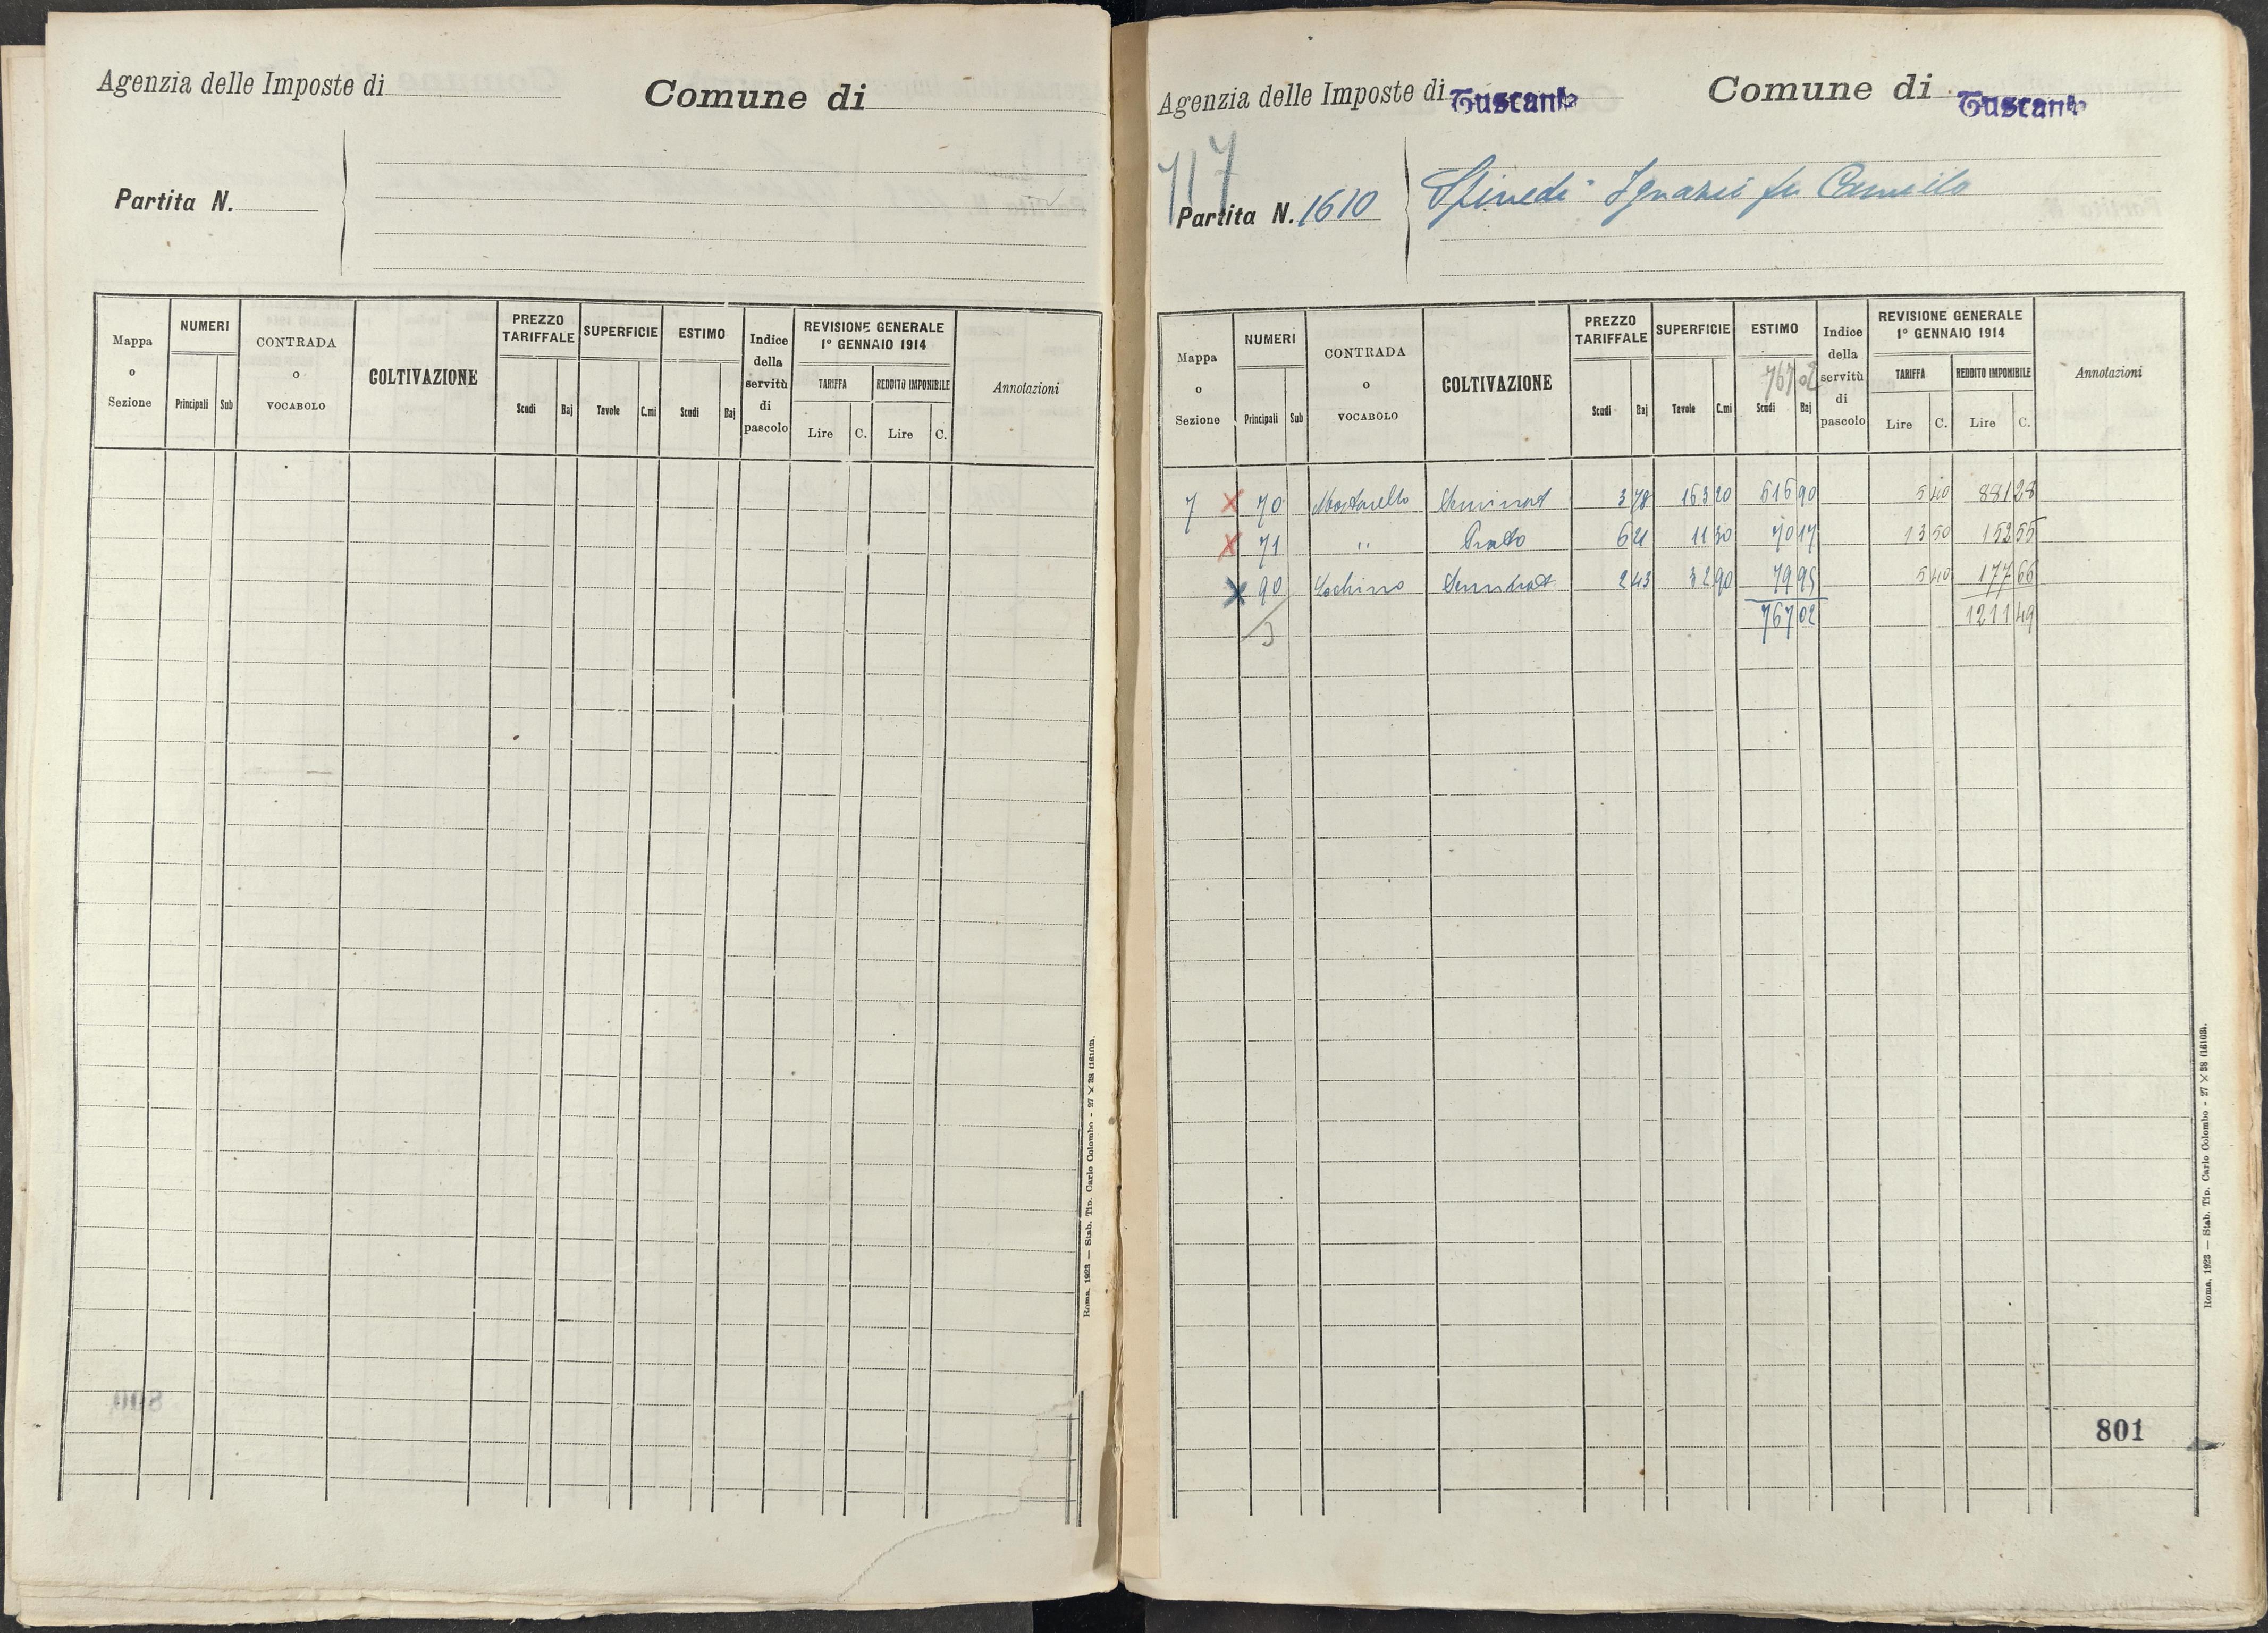 Agenzia delle Imposte di
Comune di
Partita N.
Mappa o Sezione
NUMERI
Principali
Sub
CONTRADA o VOCABOLO
COLTIVAZIONE
PREZZO TARIFFALE
Scudi
Baj
SUPERFICIE
Tavole
C.mi
ESTIMO
Scudi
Baj
Indice della servitù di pascolo
REVISIONE GENERALE
1° GENNAIO 1914
TARIFFA
REDDITO IMPONIBILE
Lire
C.
Lire
C.
Annotazioni
Roma, 1923 — Stab. Tip. Carlo Colombo - 27 × 38 (16103).
Agenzia delle Imposte di Tuscania
Comune di Tuscania
717
Partita N. 1610
Spinedi Ignazio fu Camillo
Mappa o Sezione
NUMERI
Principali
Sub
CONTRADA o VOCABOLO
COLTIVAZIONE
PREZZO TARIFFALE
Scudi
Baj
SUPERFICIE
Tavole
C.mi
ESTIMO
767 02
Scudi
Baj
Indice della servitù di pascolo
REVISIONE GENERALE
1° GENNAIO 1914
TARIFFA
REDDITO IMPONIBILE
Lire
C.
Lire
C.
Annotazioni
7 X 70 Seminat 3 78 163 20 616 90 5 40 881 28
X 71 " Prato 6 21 11 30 70 17 13 50 152 55
X 90 Seminat 2 43 32 90 79 95 5 40 177 66
3 767 02 1211 49
801
Roma, 1923 — Stab. Tip. Carlo Colombo - 27 × 38 (16103).